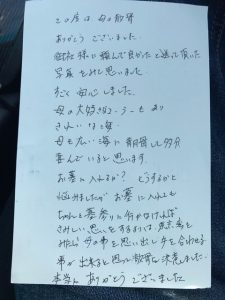 この度は 母の散骨
ありがとう ございました。
御社様に頼んで良かったと送って頂いた
写真をみて思いました。
すごく 安心しました。
母の大好きな
きれいな海。
母も広い海に 散骨し 多分
喜んでいると思います。
お墓に入れるか? どうするかと
悩みましたが お墓に入れても
ちゃんと墓参りに行かなければ
さみしい思いをするよりは、東京湾を
みたら 母の事を思い出し 手を合わせる
事が出来ると思って散骨に決意しました。
本当に ありがとう ございました